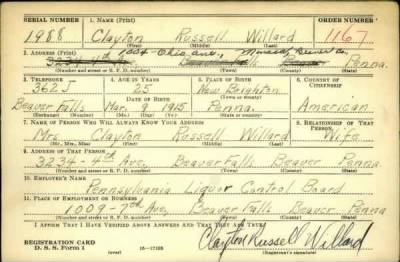 SERIAL NUMBER 1. NAME (Print) ORDER NUMBER
1988 Clayton Russell Willard 1167
(First) (Middle) (Last)
2. ADDRESS (Print) 1004-Ohio Ave, Monaca, Beaver Co.
3234-4th Ave, Beaver Falls Beaver Penna.
(Number and street or R. F. D. number) (Town) (County) (State)
3. TELEPHONE 4. AGE IN YEARS 5. PLACE OF BIRTH 6. COUNTRY OF CITIZENSHIP
362J 25 New Brighton
(Town or county)
Beaver Falls DATE OF BIRTH Mar. 9 1915 Penna. American
(Exchange) (Number) (Mo.) (Day) (Yr.) (State or country)
7. NAME OF PERSON WHO WILL ALWAYS KNOW YOUR ADDRESS 8. RELATIONSHIP OF THAT PERSON
Mrs Clayton Russell Willard Wife
(Mr., Mrs., Miss) (First) (Middle) (Last)
9. ADDRESS OF THAT PERSON
3234-4th Ave, Beaver Falls Beaver Penna
(Number and street or R. F. D. number) (Town) (County) (State)
10. EMPLOYER'S NAME
Pennsylvania Liquor Control Board
11. PLACE OF EMPLOYMENT OR BUSINESS
1009-7th Ave, Beaver Falls Beaver Penna
(Number and street or R. F. D. number) (Town) (County) (State)
I AFFIRM THAT I HAVE VERIFIED ABOVE ANSWERS AND THAT THEY ARE TRUE.
REGISTRATION CARD Clayton Russell Willard
D. S. S. Form 1 (over) 16-17105 (Registrant's signature)